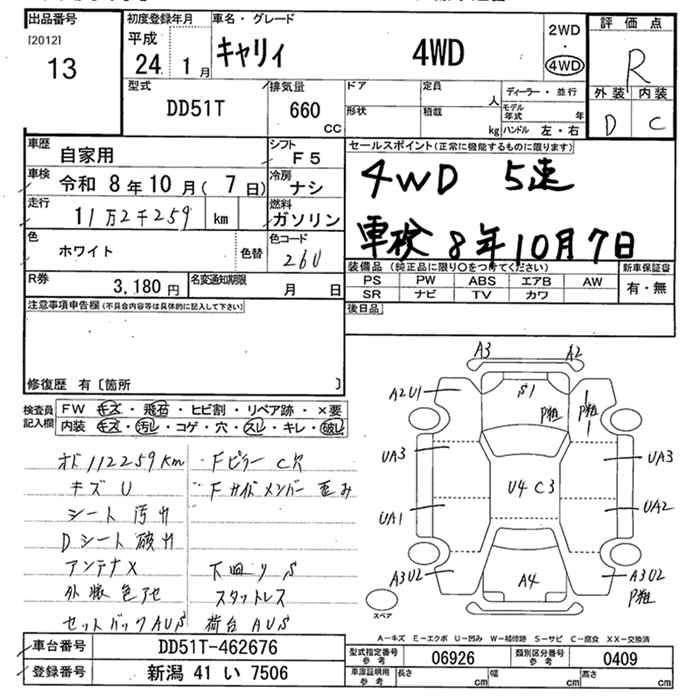 出品番号
[2012]
13
初度登録年月
平成
24 1月
車名・グレード
キャリィ 4WD
2WD
・
4WD
評価点
R
外装 内装
D C
型式
DD51T
排気量
660
CC
ドア
形状
定員
人
積載
kg
ディーラー・並行
モデル年式 年
ハンドル 左・右
車歴
自家用
シフト
F5
車検
令和 8年10月(7日)
冷房
ナシ
走行
11万2千259 km
燃料
ガソリン
色
ホワイト
色替
色コード
26U
R券
3,180円
名変通知期限
月 日
セールスポイント(正常に機能するものに限ります)
4WD 5速
車検 8年10月7日
装備品(純正品に限り○をつけてください)
PS PW ABS エアB AW
SR ナビ TV カワ
新車保証書
有・無
後日品
注意事項申告欄(不具合内容等は具体的に記入して下さい)
修復歴 有〔箇所 〕
検査員記入欄
FW キズ・飛石・ヒビ割・リペア跡・×要
内装 キズ・汚レ・コゲ・穴・スレ・キレ・破レ
メド 112259km
キズ U
シート汚レ
Dシート破レ
アンテナX
外装色アセ
セットバックAUS
Fピラー C穴
Fサイドメンバー 歪み
下回りS
スタットレス
荷台AUS
A3 A2
A2U1 S1 P粗 P粗1
UA3 UA3
U4 C3
UA1 UA2
A3U2 A4 A3U2
P粗
スペア
A−キズ E−エクボ U−凹み W−補修跡 S−サビ C−腐食 XX−交換済
車台番号
DD51T-462676
登録番号
新潟 41 い 7506
型式指定番号
参考
06926
類別区分番号
参考
0409
車庫証明用
参考
長さ cm
幅 cm
高さ cm